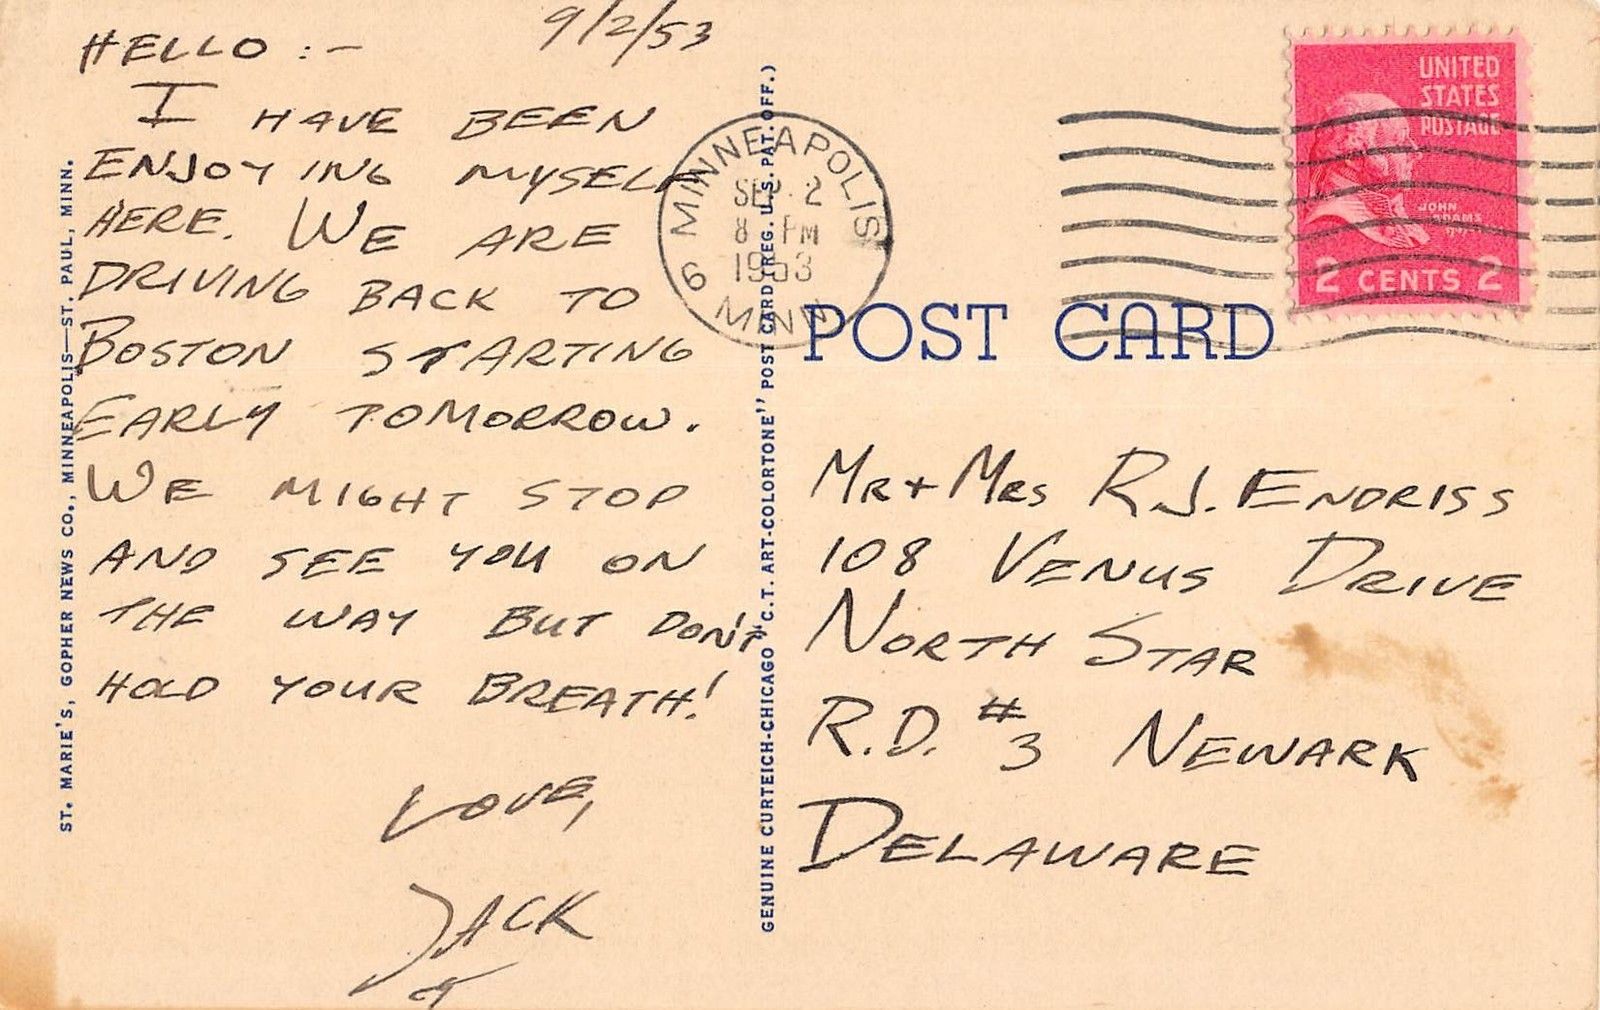 9/2/53
HELLO :-
I HAVE BEEN
ENJOYING MYSELF
HERE. WE ARE
DRIVING BACK TO
BOSTON STARTING
EARLY TOMORROW.
WE MIGHT STOP
AND SEE YOU ON
THE WAY BUT DON'T
HOLD YOUR BREATH!
LOVE,
JACK
ST. MARIE'S, GOPHER NEWS CO., MINNEAPOLIS—ST. PAUL, MINN.
GENUINE CURTEICH-CHICAGO "C.T. ART-COLORTONE" POST CARD (REG. U.S. PAT. OFF.)
MINNEAPOLIS
SEP 2
8 PM
1953
6 MINN
UNITED
STATES
POSTAGE
JOHN
ADAMS
2 CENTS 2
POST CARD
MR + MRS R.J. ENDRISS
108 VENUS DRIVE
NORTH STAR
R.D. #3 NEWARK
DELAWARE